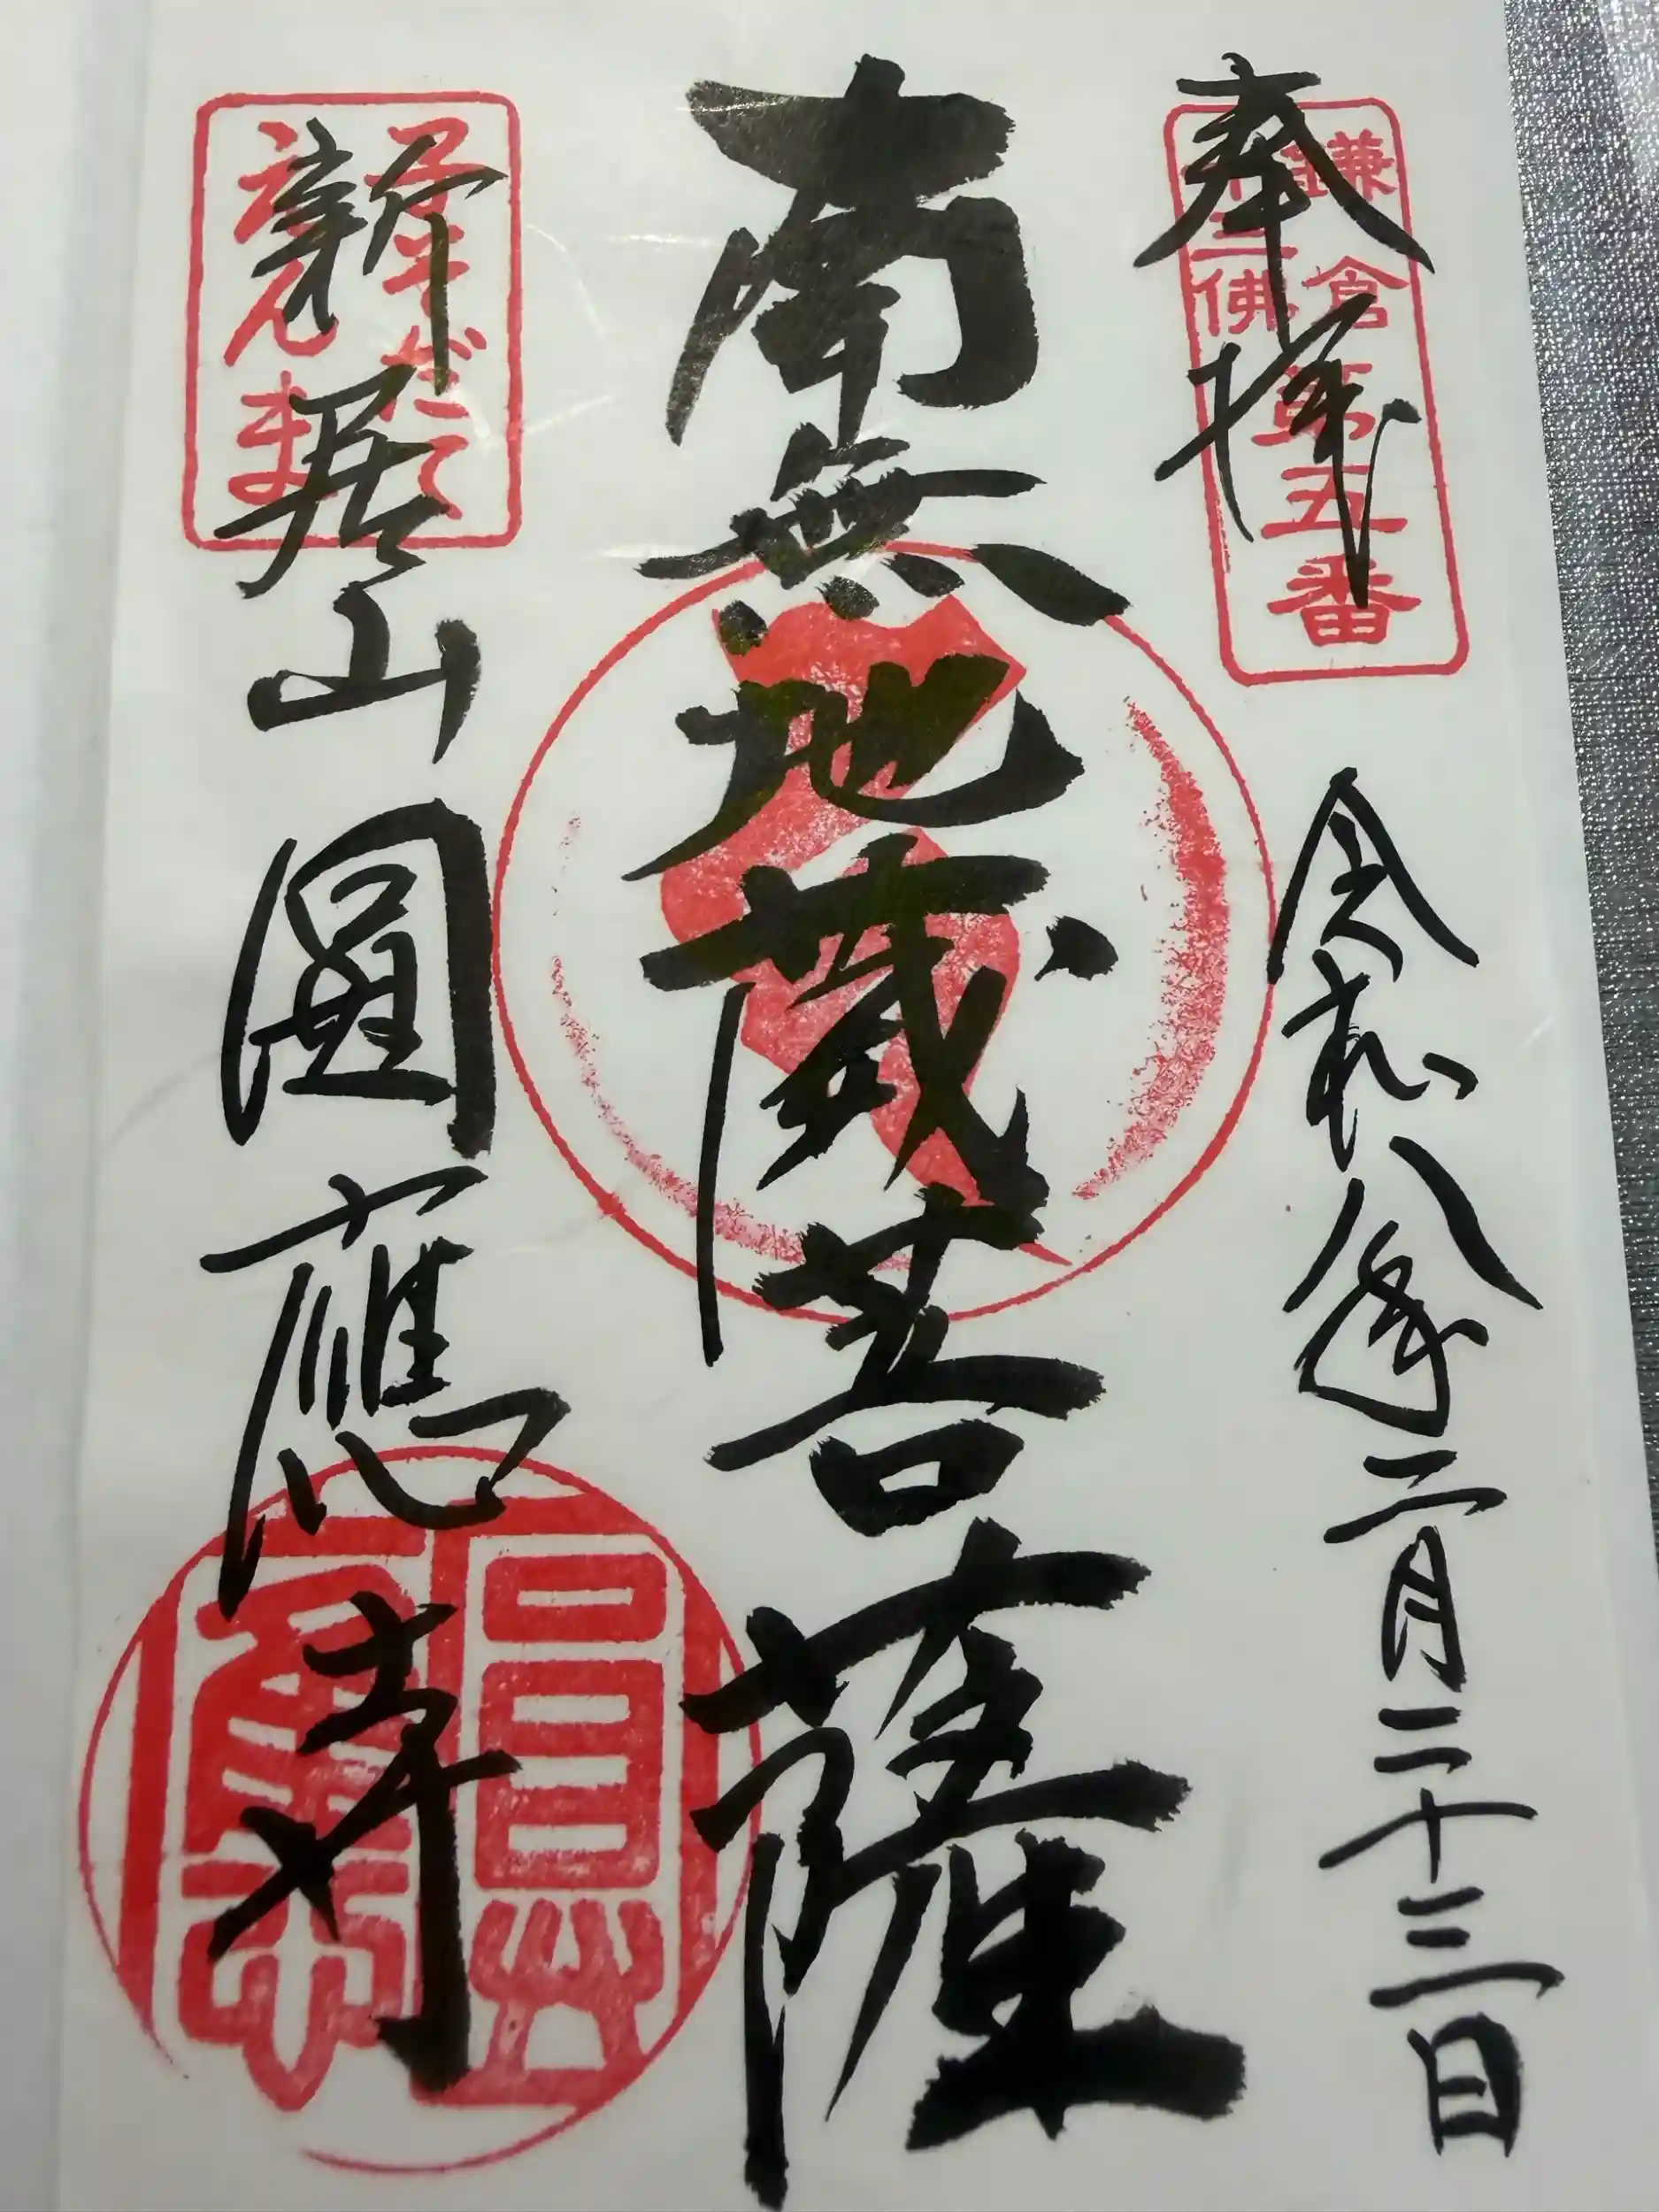 奉拝
鎌倉
十三佛
第五番
令和八年二月二十三日
南無地蔵菩薩
子そだて
えんま
新居山圓應寺